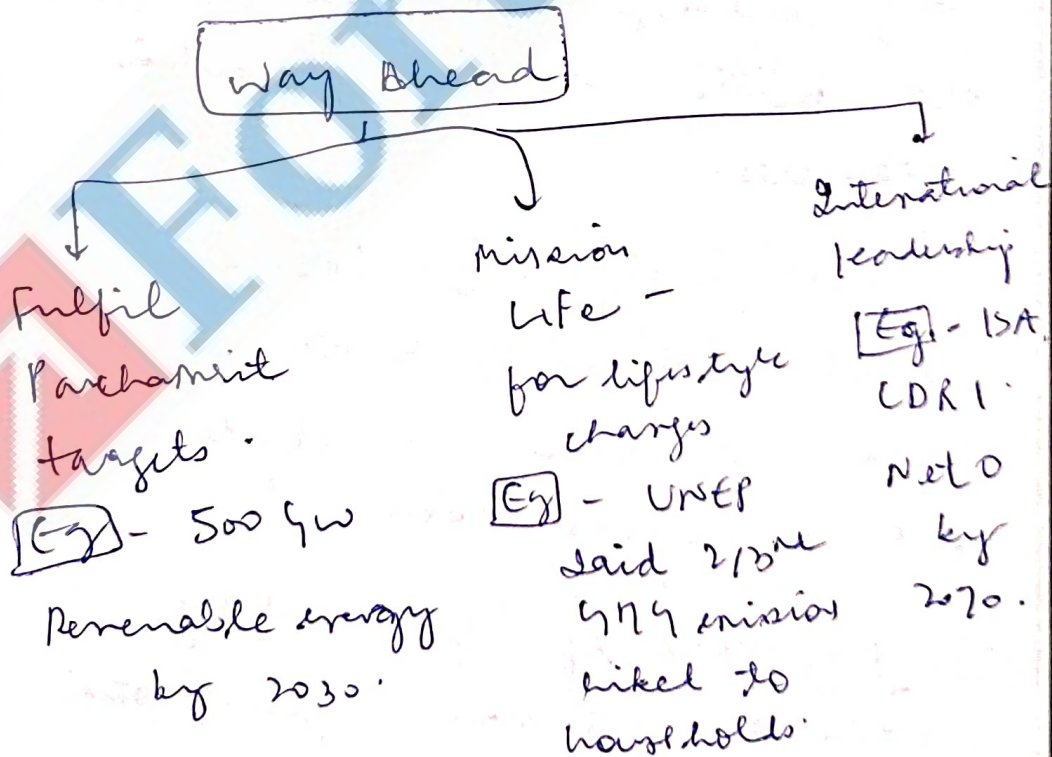 Way Ahead
Fulfil
Panchamrit
targets.
Eg - 500 GW
Renewable energy
by 2030.
Mission
LiFe -
for lifestyle
changes
Eg - UNEP
said 2/3rd
GHG emission
linked to
households.
International
leadership
Eg. - ISA
CDRI.
Net 0
by
2070.